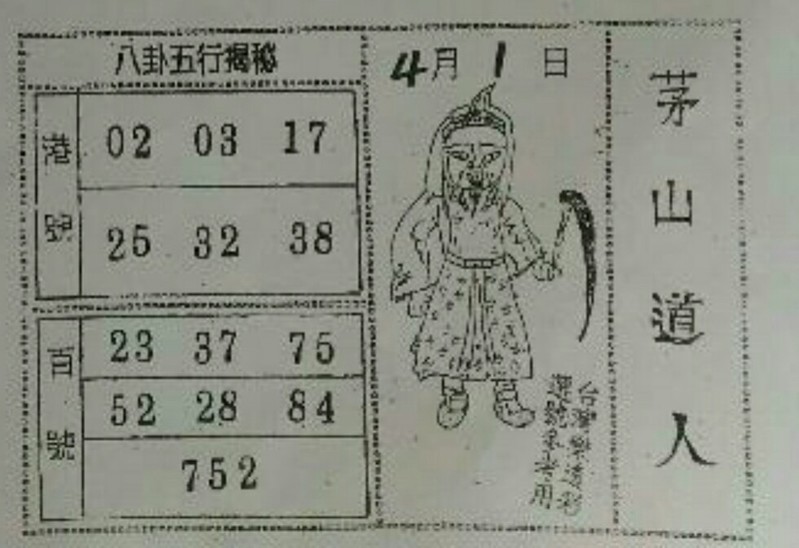 八卦五行揭秘
港號
02 03 17
25 32 38
百號
23 37 75
52 28 84
752
4月1日
台灣樂透彩
參考用
茅山道人